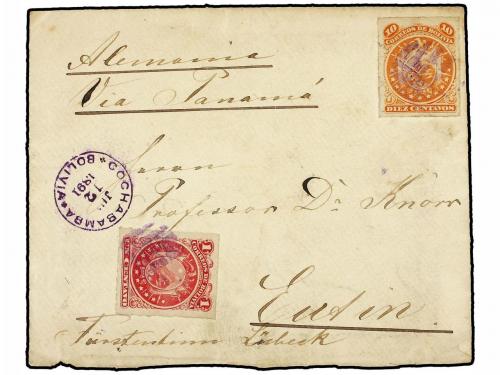 Alemania
Via Panamá
10 CORREOS DE BOLIVIA 10
DIEZ CENTAVOS
Herrn
Professor Dr. Knorr
COCHABAMBA
12
1891
BOLIVIA
1 CORREOS DE BOLIVIA 1
UN CENTAVO
Eutin
Fürstentum Lübeck